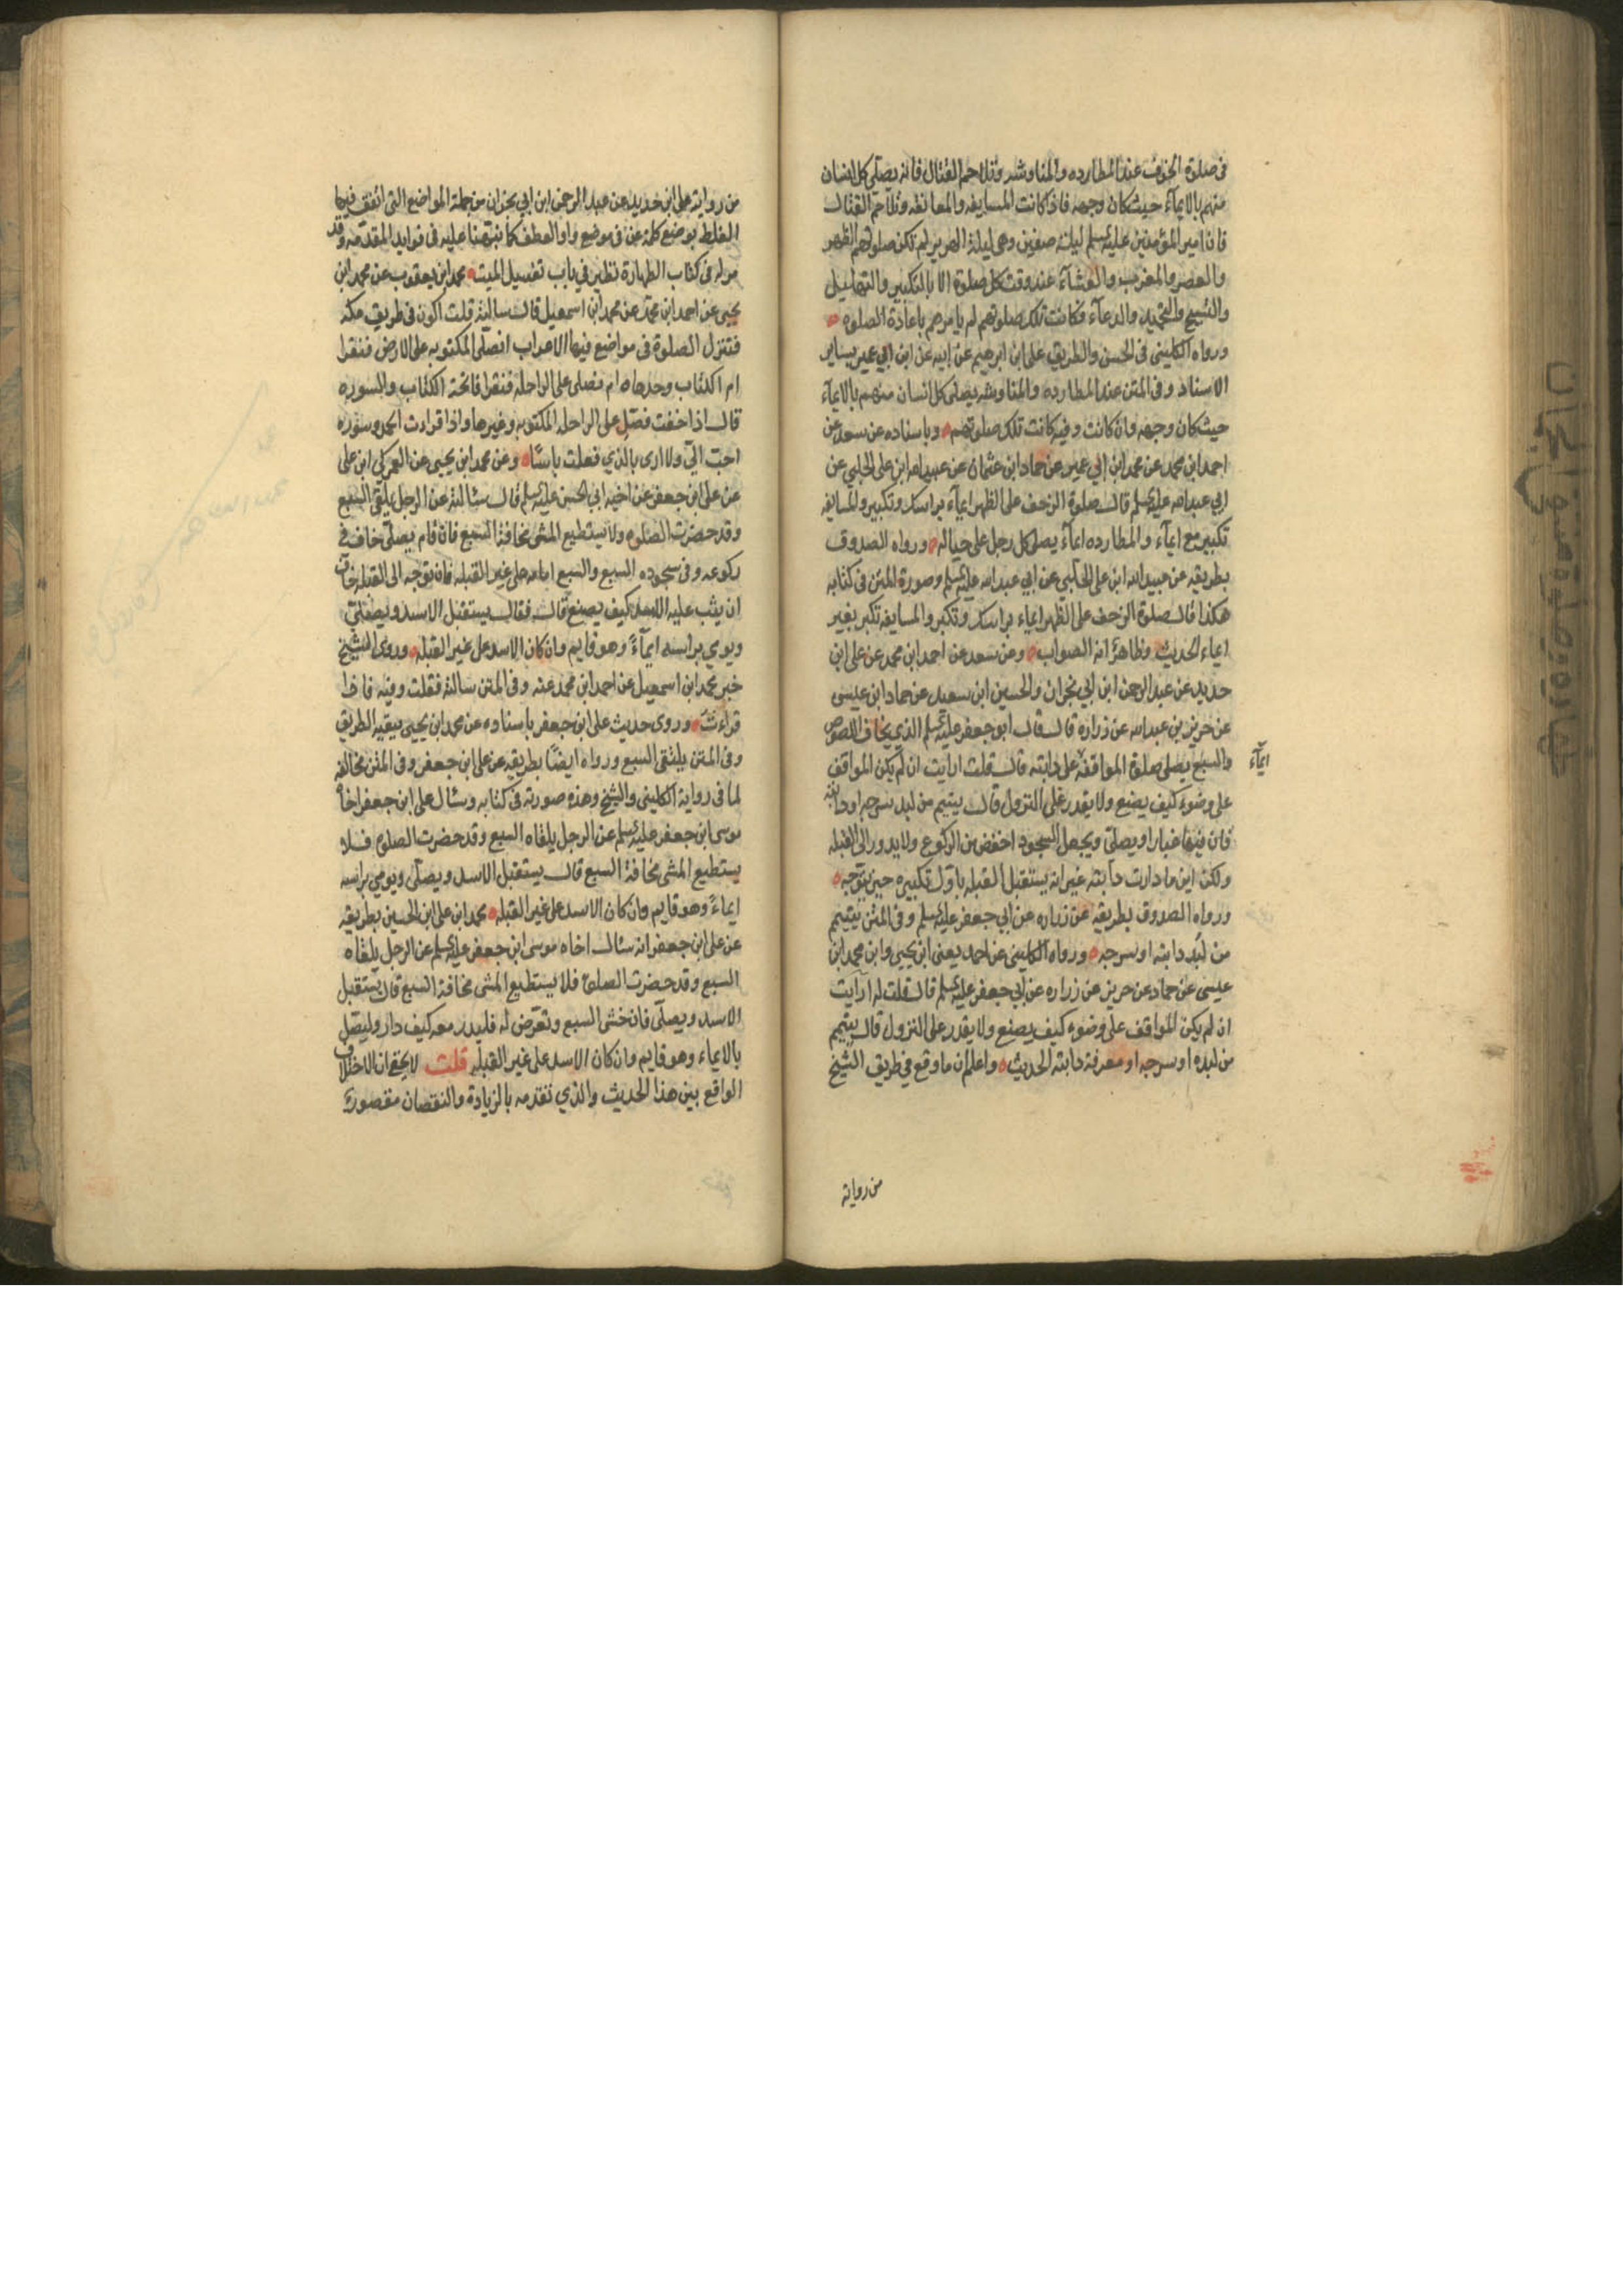 في صلوة الخوف عند المطارده والمناوشه وتلاحم القتال فانه يصلي كل انسان
منهم بالايماء حيث كان وجهه فاذا كانت المسايفه والمعانقه وتلاحم القتال
فان امير المؤمنين عليه السلم ليلة صفين وهي ليلة الهرير لم تكن صلوتهم الظهر
والعصر والمغرب والعشاء عند وقت كل صلوة الا بالتكبير والتهليل
والتسبيح والتحميد والدعآء فكانت تلك صلوتهم لم يامرهم باعادة الصلوه
ورواه الكليني في الحسن والطريق علي ابن ابرهيم عن ابيه عن ابن ابي عمير بساير
الاسناد وفي المتن عند المطارده والمناوشه يصلي كل انسان منهم بالايمآء
حيث كان وجهه وان كانت وفيه كانت تلك صلوتهم وباسناده عن سعد عن
احمد ابن محمد عن محمد ابن ابي عمير عن حماد ابن عثمان عن عبيدالله ابن علي الحلبي عن
ابي عبدالله عليه السلم قال صلوة الزحف على الظهر ايمآء براسك وتكبير والمسايفه
تكبير مع ايمآء والمطارده ايمآء يصلي كل رجل على حياله ورواه الصدوق
بطريقه عن عبيدالله ابن علي الحلبي عن ابي عبدالله عليه السلم وصورة المتن في كتابه
هكذا قال صلوة الزحف على الظهر ايماء براسك وتكبر والمسايفه تكبر بغير
ايماء الحديث وظاهرا انه الصواب وعن سعد عن احمد ابن محمد عن علي ابن
حديد عن عبد الرحمن ابن ابي نجران والحسين ابن سعيد عن حماد ابن عيسى
عن حريز بن عبدالله عن زراره قال قال ابو جعفر عليه السلم الذي يخاف اللصوص
والسبع يصلي صلوة المواقفة على دابته قال قلت ارايت ان لم يكن المواقف
ايمآء
على وضوء كيف يصنع ولا يقدر على النزول قال يتيمم من لبد سرجه او دابته
فان فيها غبارا ويصلي ويجعل السجود اخفض من الركوع ولا يدور الى القبله
ولكن اين ما دارت دآبته غير انه يستقبل القبله باول تكبيره حين يتوجه
ورواه الصدوق بطريقه عن زراره عن ابي جعفر عليه السلم وفي المتن يتيمم
من لبد دابته او سرجه ورواه الكليني عن احمد يعني ابن يحيى وابن محمد ابن
عيسى عن حماد عن حريز عن زراره عن ابي جعفر عليه السلم قال قلت له ارآيت
ان لم يكن المواقف على وضوء كيف يصنع ولا يقدر على النزول قال يتيمم
من لبده او سرجه او معرفة دابته الحديث واعلم ان ما وقع في طريق الشيخ
من رواية
من رواية علي ابن حديد عن عبد الرحمن ابن ابي نجران من جملة المواضع التي اتفق فيها
الغلط بوضع كلمة عن في موضع واو العطف كما نبهنا عليه في فوايد المقدمه وقد
مر له في كتاب الطهارة نظير في باب تغسيل الميت محمد ابن يعقوب عن محمد ابن
يحيى عن احمد ابن محمد عن محمد ابن اسمعيل قال سالته قلت اكون في طريق مكه
فننزل الصلوة في مواضع فيها الاعراب انصلي المكتوبه على الارض فنقرا
ام الكتاب وحدها ام نصلي على الراحله فنقرا فاتحة الكتاب والسوره
قال اذا خفت فصل على الراحله المكتوبه وغيرها واذا قرات الحمد وسوره
احب الي ولا ارى بالذي فعلت باسا وعن محمد ابن يحيى عن العمركي ابن علي
عن علي ابن جعفر عن اخيه ابي الحسن عليه السلم قال سئالته عن الرجل يلقى السبع
وقد حضرت الصلوه ولا يستطيع المشي مخافة السبع فان قام يصلي خاف في
ركوعه وفي سجوده السبع والسبع امامه على غير القبله فان توجه الى القبله خاف
ان يثب عليه الاسد كيف يصنع قال فقال يستقبل الاسد ويصلي
ويومي براسه ايمآء وهو قايم وان كان الاسد على غير القبله وروى الشيخ
خبر محمد ابن اسمعيل عن احمد ابن محمد عنه وفي المتن سالته فقلت وفيه فاذا
قراءت وروى حديث علي ابن جعفر باسناده عن محمد ابن يحيى ببقية الطريق
وفي المتن يلتقي السبع ورواه ايضا بطريقه عن علي ابن جعفر وفي المتن مخالفه
لما في رواية الكليني والشيخ وهذه صورته في كتابه وسئال علي ابن جعفر اخاه
موسى ابن جعفر عليه السلم عن الرجل يلقاه السبع وقد حضرت الصلوه فلا
يستطيع المشي مخافة السبع قال يستقبل الاسد ويصلي ويومي براسه
ايماء وهو قايم وان كان الاسد على غير القبله محمد ابن علي ابن الحسين بطريقه
عن علي ابن جعفر انه سئال اخاه موسى ابن جعفر عليه السلم عن الرجل يلقاه
السبع وقد حضرت الصلوة فلا يستطيع المشي مخافة السبع قال يستقبل
الاسد ويصلي فان خشى السبع وتعرض له فليدر معه كيف دار وليصل
بالايماء وهو قايم وان كان الاسد على غير القبله قلت لا يخفى ان الاختلاف
الواقع بين هذا الحديث والذي تقدمه بالزيادة والنقصان مقصور